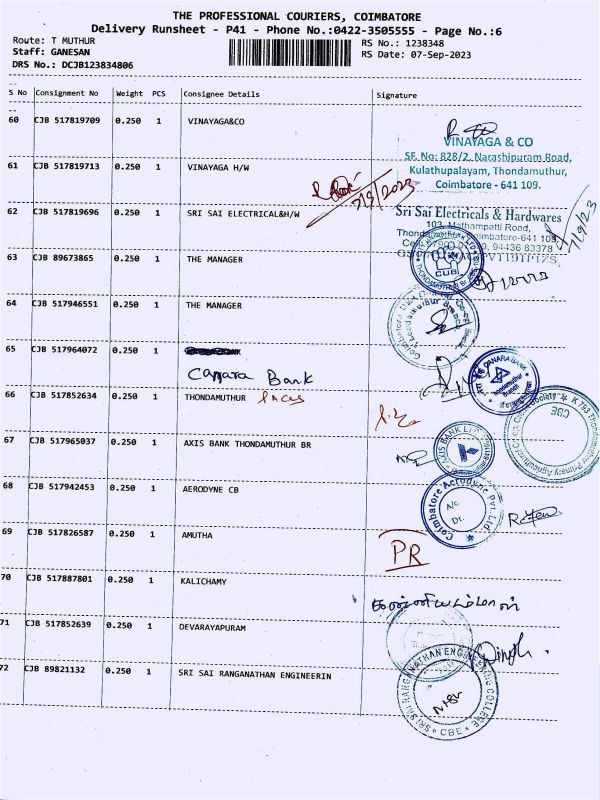 THE PROFESSIONAL COURIERS, COIMBATORE
Delivery Runsheet - P41 - Phone No.:0422-3505555 - Page No.:6
Route: T MUTHUR
RS No.: 1238348
Staff: GANESAN
RS Date: 07-Sep-2023
DRS No.: DCJB123834806
S No Consignment No Weight PCS Consignee Details Signature
60 CJB 517819709 0.250 1 VINAYAGA&CO
VINAYAGA & CO
SF. No: 828/2, Narashipuram Road,
Kulathupalayam, Thondamuthur,
Coimbatore - 641 109.
61 CJB 517819713 0.250 1 VINAYAGA H/W
7/9/2023
62 CJB 517819696 0.250 1 SRI SAI ELECTRICAL&H/W
Sri Sai Electricals & Hardwares
103, Mathampatti Road,
Coimbatore-641 109
94436 83378
7/9/23
63 CJB 89673865 0.250 1 THE MANAGER
CUB
64 CJB 517946551 0.250 1 THE MANAGER
65 CJB 517964072 0.250 1
Canara Bank
CANARA BANK
66 CJB 517852634 0.250 1 THONDAMUTHUR
CBE
67 CJB 517965037 0.250 1 AXIS BANK THONDAMUTHUR BR
AXIS BANK LTD
68 CJB 517942453 0.250 1 AERODYNE CB
Coimbatore Aerodyne Pvt. Ltd.
A/c
Dt.
69 CJB 517826587 0.250 1 AMUTHA
PR
70 CJB 517887801 0.250 1 KALICHAMY
கன்னியம்மாள்
71 CJB 517852639 0.250 1 DEVARAYAPURAM
72 CJB 89821132 0.250 1 SRI SAI RANGANATHAN ENGINEERIN
SRI SAI RANGANATHAN ENGINEERING COLLEGE
CBE